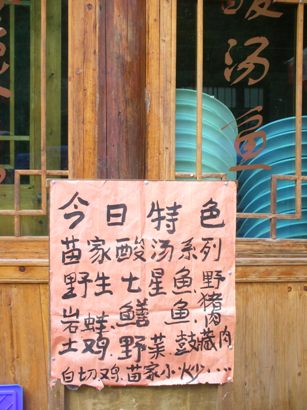 酸汤鱼
今日特色
苗家酸汤系列
野生七星鱼野猪肉
岩蜂.鳝鱼.
土鸡.野菜鼓藏肉
白切鸡.苗家小炒....